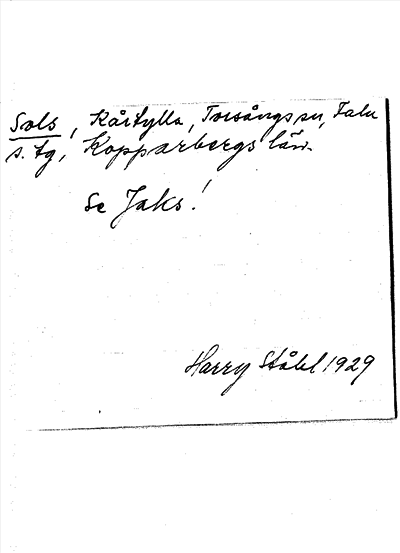 Sols, Kårtylla, Torsångs sn, Falu
s. tg, Kopparbergs län.
Se Jaks!
Harry Ståhl 1929